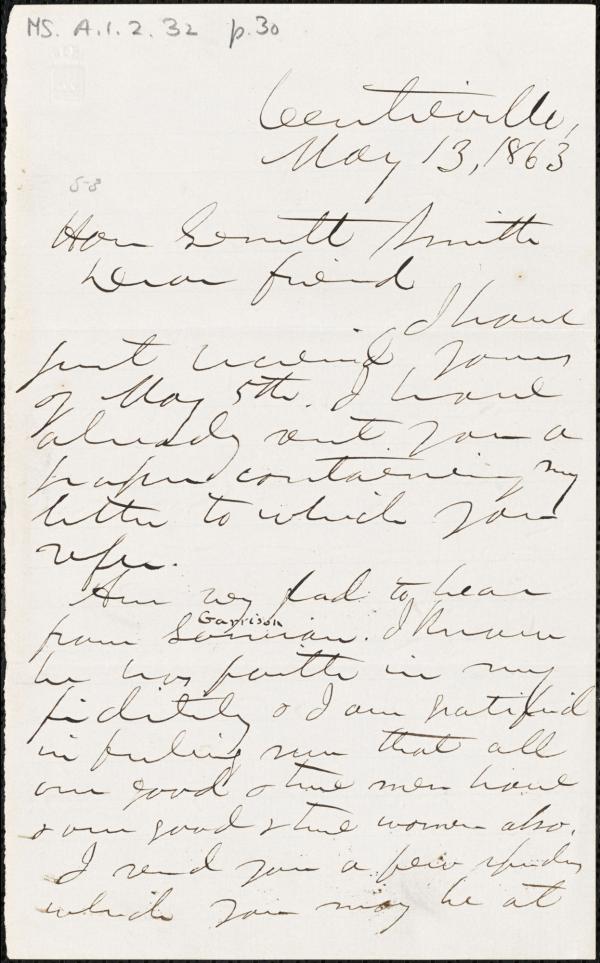 MS. A.1.2.32 p.30
Centreville,
May 13, 1863
58
Hon Gerritt Smith
Dear friend
I have
just received yours
of May 5th. I have
already sent you a
paper containing my
letter to which you
refer.
Am very glad to hear
Garrison
from Garrison. I know
he has faith in my
fidelity & I am gratified
in feeling sure that all
our good & true men have
& our good & true women also.
I send you a few
which you may be at